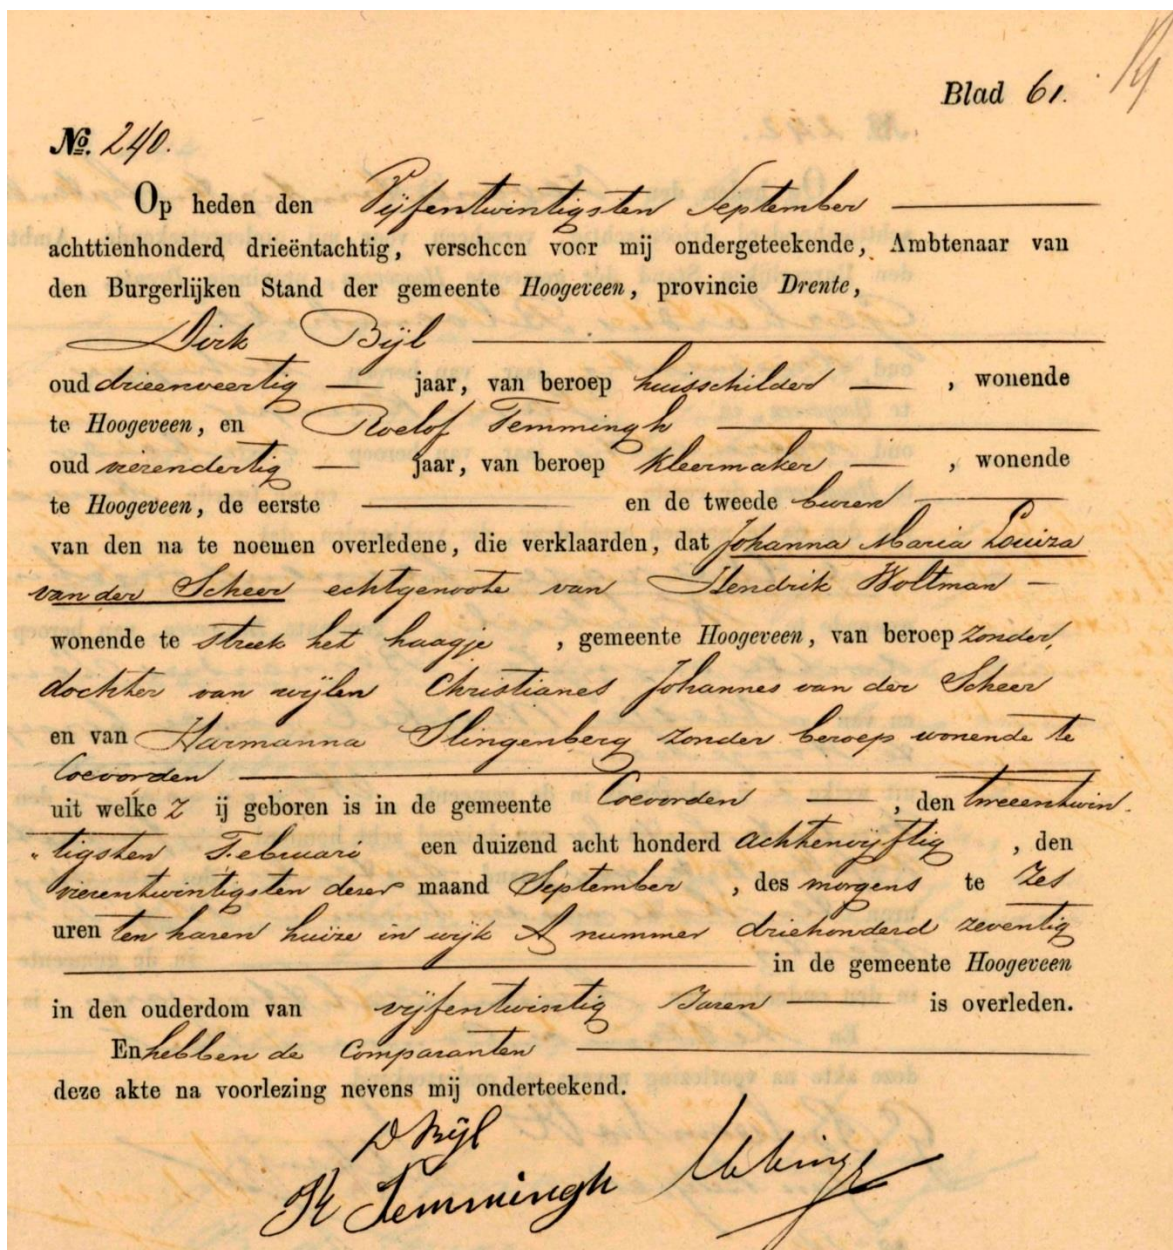 Blad 61.
No. 240.
Op heden den Vijfentwintigsten September
achttienhonderd drieëntachtig, verscheen voor mij ondergeteekende, Ambtenaar van
den Burgerlijken Stand der gemeente Hoogeveen, provincie Drente,
Dirk Bijl
oud drieenveertig jaar, van beroep huisschilder, wonende
te Hoogeveen, en Roelof Temmingh
oud vierendertig jaar, van beroep Kleermaker, wonende
te Hoogeveen, de eerste en de tweede buren
van den na te noemen overledene, die verklaarden, dat Johanna Maria Louiza
van der Scheer echtgenoote van Hendrik Woltman
wonende te streek het haagje, gemeente Hoogeveen, van beroep zonder,
dochter van wijlen Christianes Johannes van der Scheer
en van Harmanna Slingenberg zonder beroep wonende te
Coevorden
uit welke Z ij geboren is in de gemeente Coevorden, den tweeentwin-
"tigsten Februari een duizend acht honderd achtenvijftig, den
vierentwintigsten dezer maand September, des morgens te Zes
uren ten haren huize in wijk A nummer driehonderd zeventig
in de gemeente Hoogeveen
in den ouderdom van vijfentwintig Jaren is overleden.
En hebben de Comparanten
deze akte na voorlezing nevens mij onderteekend.
D Bijl
R Temmingh